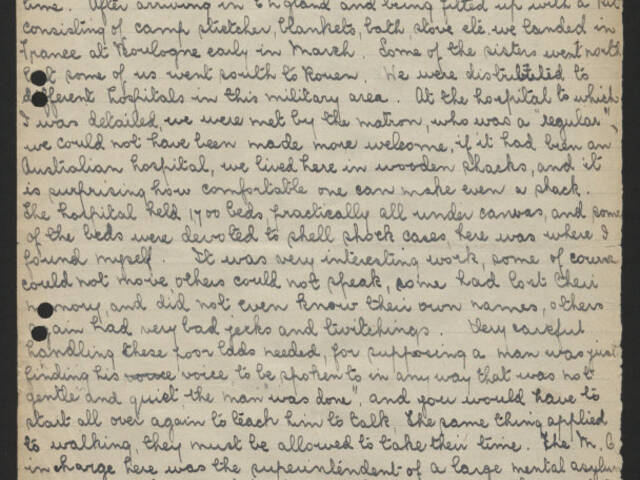 time. After arriving in England and being fitted up with a kit
consisting of camp stretcher, blankets, bath stove ele, we landed in
France at Boulogne early in March. Some of the sisters went north
but some of us went south to Rouen. We were distributed to
different hospitals in this military area. At the hospital to which
I was detailed, we were met by the matron, who was a "regular",
we could not have been made more welcome, if it had been an
Australian hospital, we lived here in wooden shacks, and it
is surprising how comfortable one can make even a shack.
The hospital held 1700 beds, practically all under canvas, and some
of the beds were devoted to shell shock cases, here was where I
found myself. It was very interesting work, some of course
could not move others could not speak, some had lost their
memory, and did not even know their own names, others
again had very bad jerks and twitchings. Very careful
handling these poor lads needed, for supposing a man was just
finding his voice to be spoken to in any way that was not
gentle and quiet, the man "was done", and you would have to
start all over again to teach him to talk, The same thing applied
to walking, they must be allowed to take their time. The M.O
in charge here was the superintendent of a large mental asylum